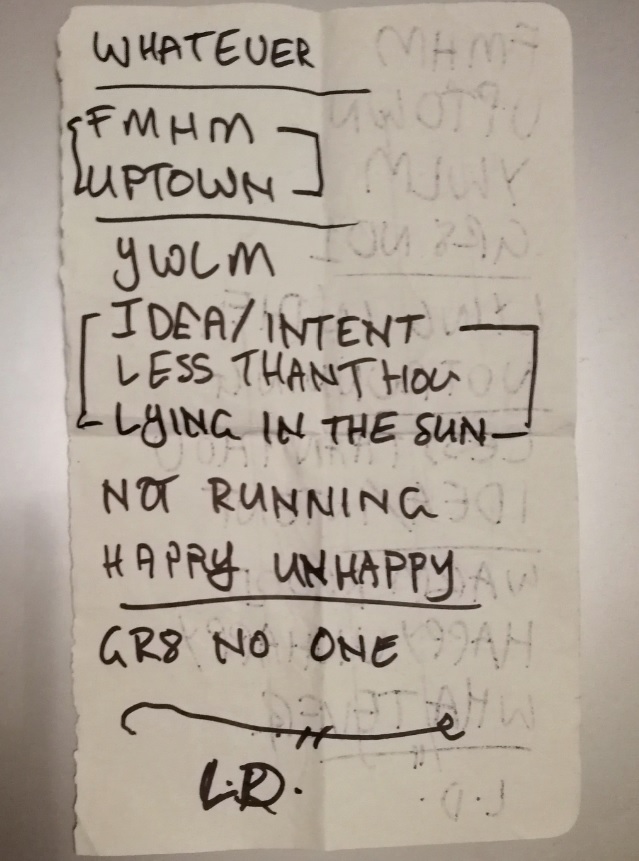 WHATEVER
FMHM
UPTOWN
YWLM
IDEA/INTENT
LESS THAN THOU
LYING IN THE SUN
NOT RUNNING
HAPPY UNHAPPY
GR8 NO ONE
L.D.